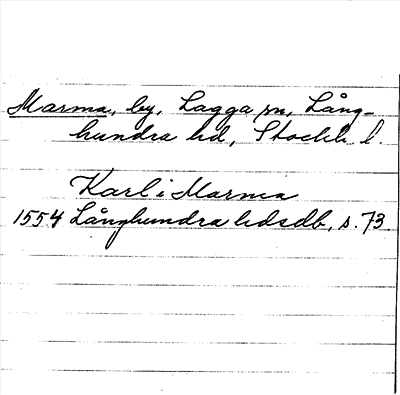 Marma, by, Lagga sn, Lång-
hundra hd, Stockh. l.
Karl i Marma
1554 Långhundra hdsdb, s. 73